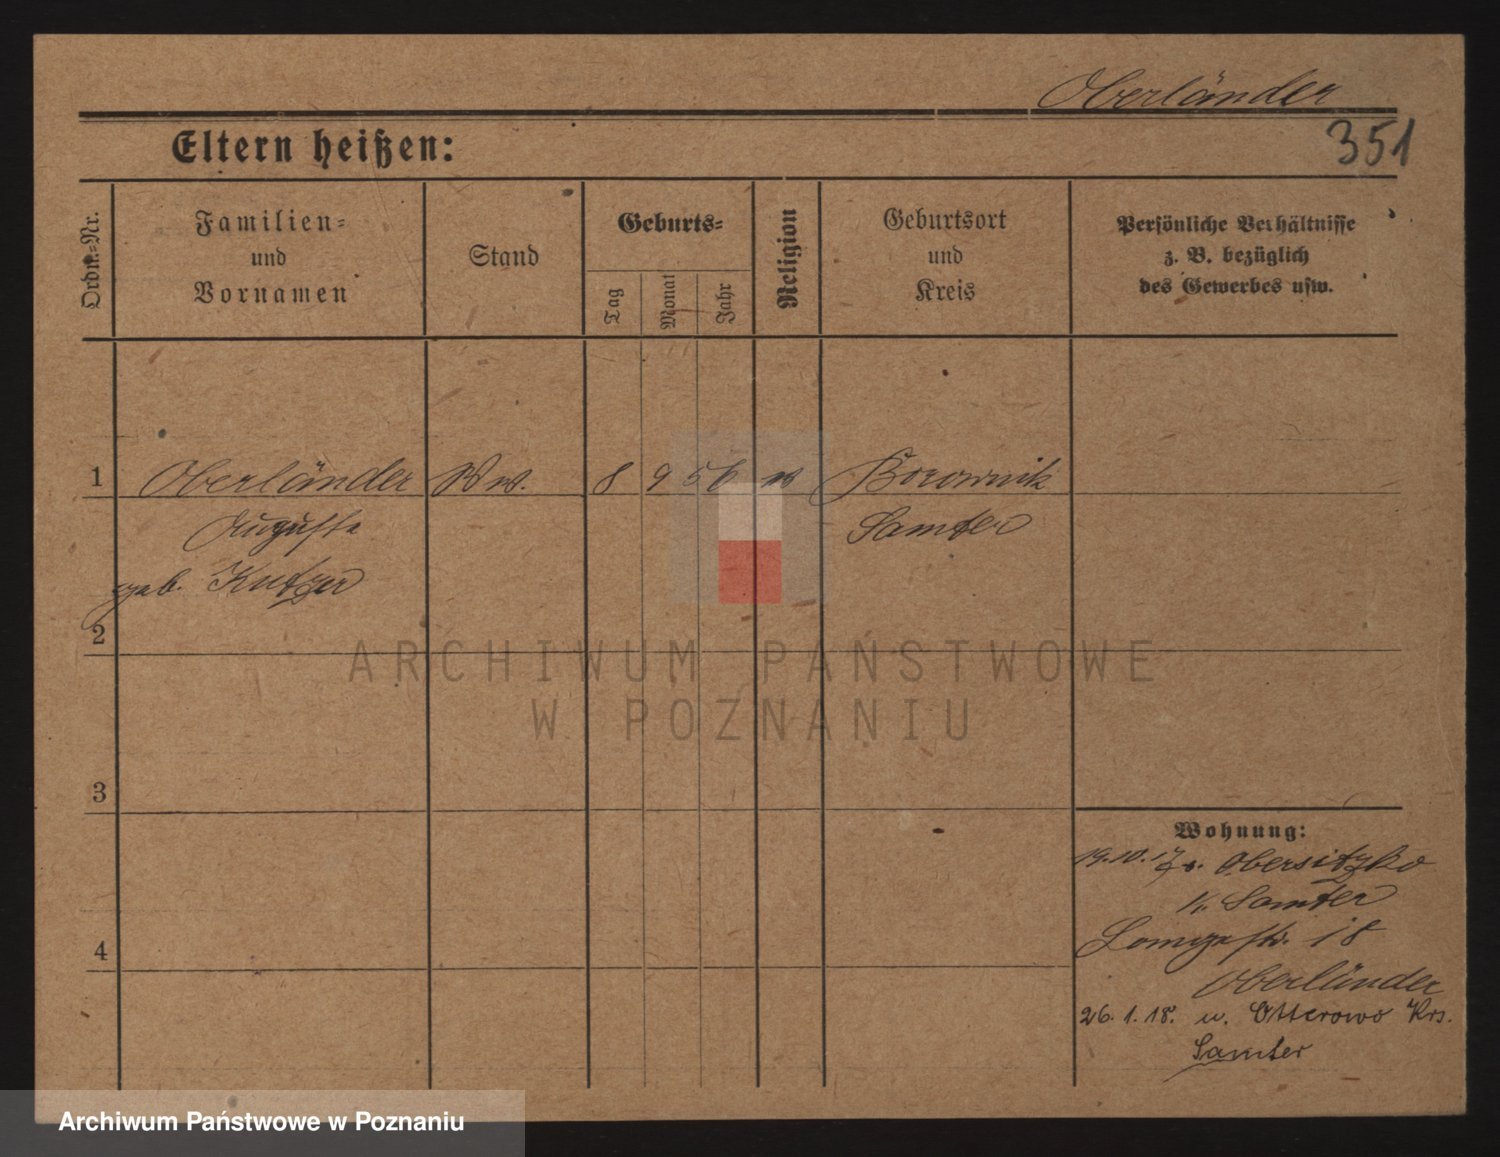 Oberländer
Eltern heißen:
351
Ordn.-Nr.
Familien-
und
Vornamen
Stand
Geburts-
Tag
Monat
Jahr
Religion
Geburtsort
und
Kreis
Persönliche Verhältnisse
z. B. bezüglich
des Gewerbes usw.
1 Oberländer Ww. 8 9 56 Borownik
Auguste Samter
geb. Kutzer
2
3
4
Wohnung:
19.10.17 v. Obersitzko
K. Samter
18
Oberländer
26.1.18. u. Otterowo Krs.
Samter
ARCHIWUM PAŃSTWOWE
W POZNANIU
Archiwum Państwowe w Poznaniu